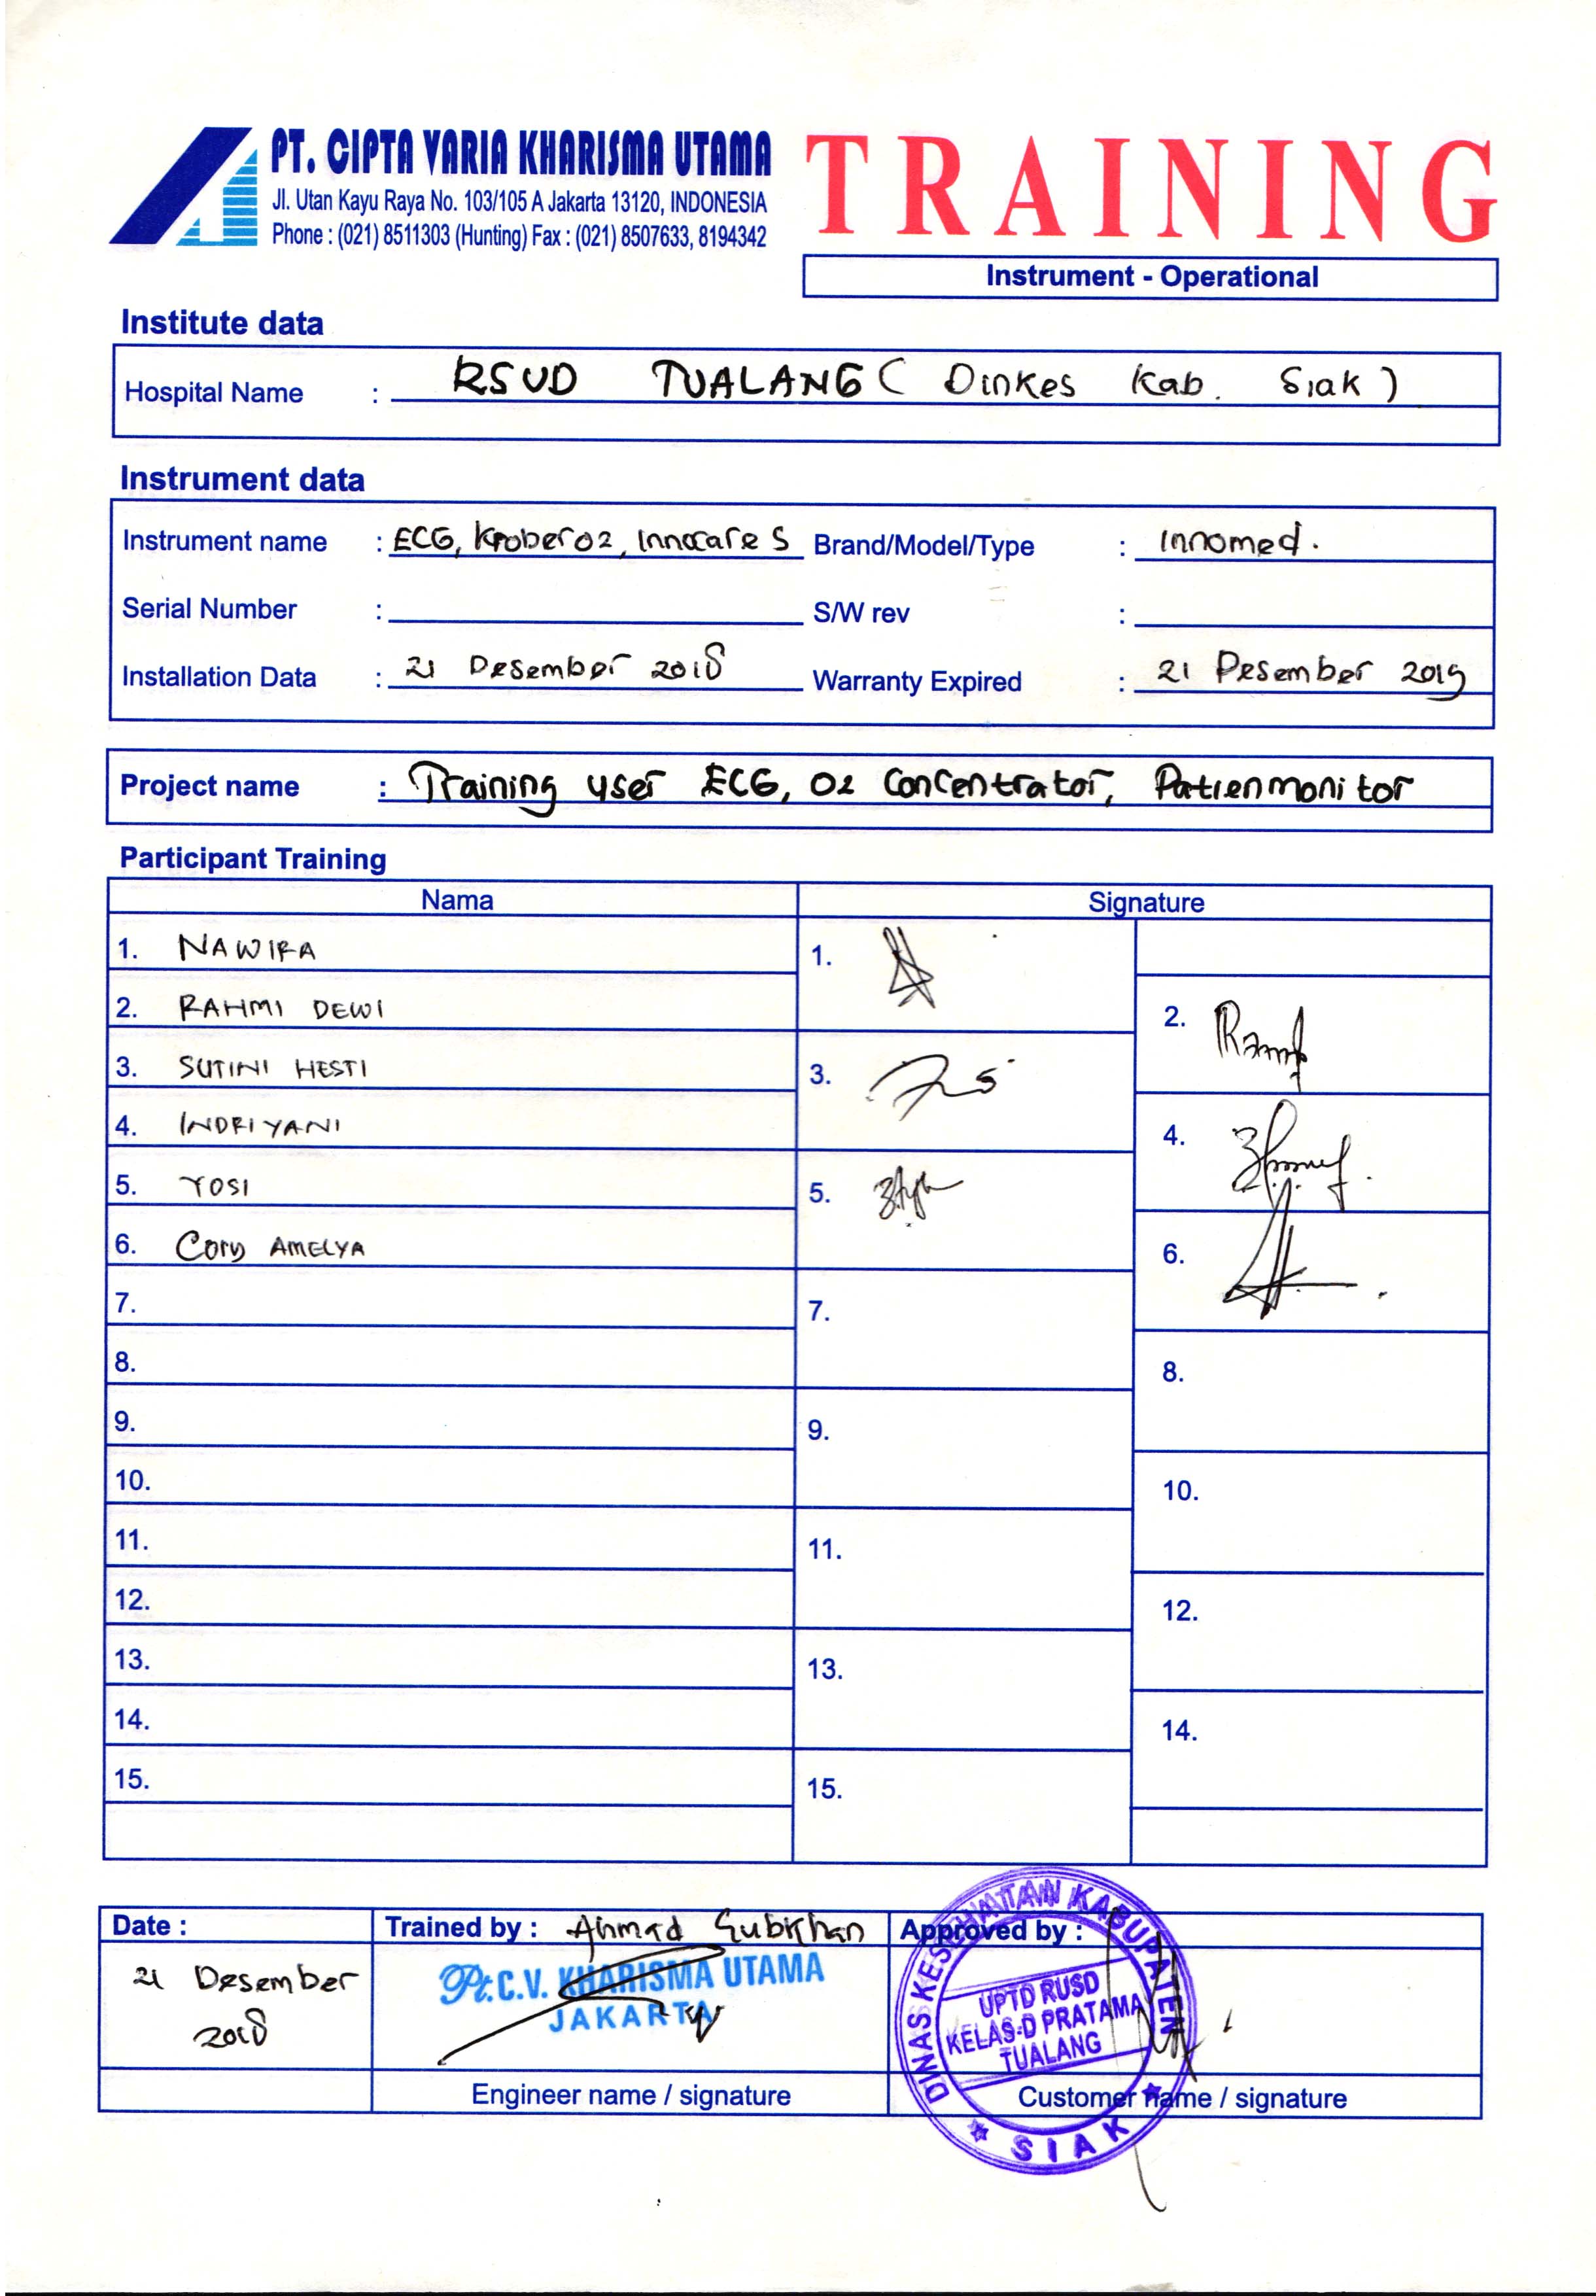 PT. CIPTA VARIA KHARISMA UTAMA
Jl. Utan Kayu Raya No. 103/105 A Jakarta 13120, INDONESIA
Phone : (021) 8511303 (Hunting) Fax : (021) 8507633, 8194342
TRAINING
Instrument - Operational
Institute data
Hospital Name : RSUD TUALANG ( Dinkes Kab. Siak )
Instrument data
Instrument name : ECG, Krober O2, Innocare S Brand/Model/Type : Innomed.
Serial Number : S/W rev :
Installation Data : 21 Desember 2018 Warranty Expired : 21 Desember 2019
Project name : Training user ECG, O2 Concentrator, Patien monitor
Participant Training
Nama Signature
1. NAWIRA 1.
2. RAHMI DEWI 2.
3. SUTINI HESTI 3.
4. INDRIYANI 4.
5. YOSI 5.
6. Cory AMELYA 6.
7. 7.
8. 8.
9. 9.
10. 10.
11. 11.
12. 12.
13. 13.
14. 14.
15. 15.
Date : Trained by : Ahmad Subkhan Approved by :
21 Desember
2018
Pt. C.V. KHARISMA UTAMA
JAKARTA
DINAS KESEHATAN KABUPATEN
UPTD RUSD
KELAS-D PRATAMA
TUALANG
SIAK
Engineer name / signature Customer name / signature